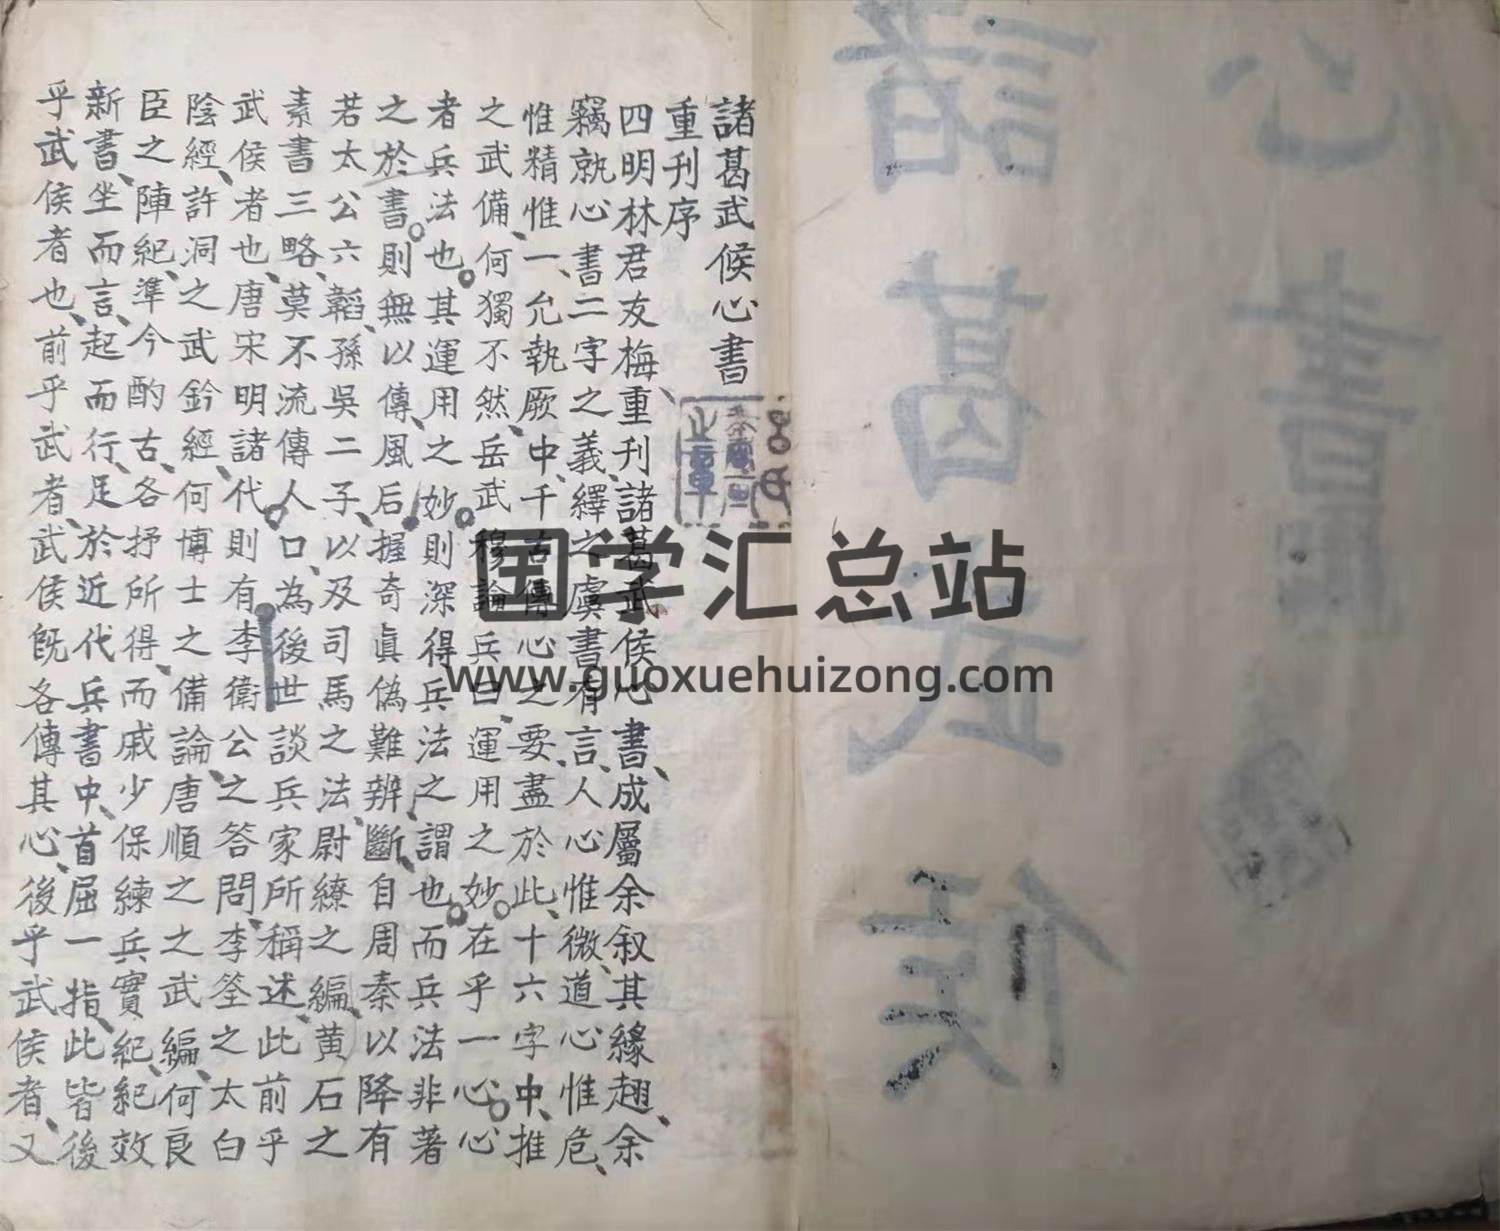 諸葛武侯
心書
諸葛武候心書、
重刊序
四明林君友梅重刊諸葛武侯心書、成屬余叙其緣趣、余
竊就心書二字之義繹之虞書有言、人心惟微、道心惟危、
惟精惟一、允執厥中、千古傳心之要、盡於此、十六字中、推
之武備、何獨不然、岳武穆論兵曰、運用之妙。在乎一心。心
者兵法也。其運用之妙。則深得兵法之謂也。而兵法非著
之於書。則無以傳、風后握奇眞偽難辨、斷自周秦以降有
若太公六韜、孫吳二子、以及司馬之法、尉繚之編、黃石之
素書三略、莫不流傳人口、為後世談兵家所稱述、此前乎
武侯者也唐宋明諸代。則有李衛公之答問、李筌之太白
陰經、許洞之武鈐經、何博士之備論、唐順之之武編、何良
臣之陣紀、準今酌古、各抒所得、而戚少保練兵實紀、紀效
新書、坐而言、起而行、足於近代兵書中、首屈一指、此皆後
乎武侯者也、前乎武者武侯旣各傳其心、後乎武侯者、又
国学汇总站
www.guoxuehuizong.com